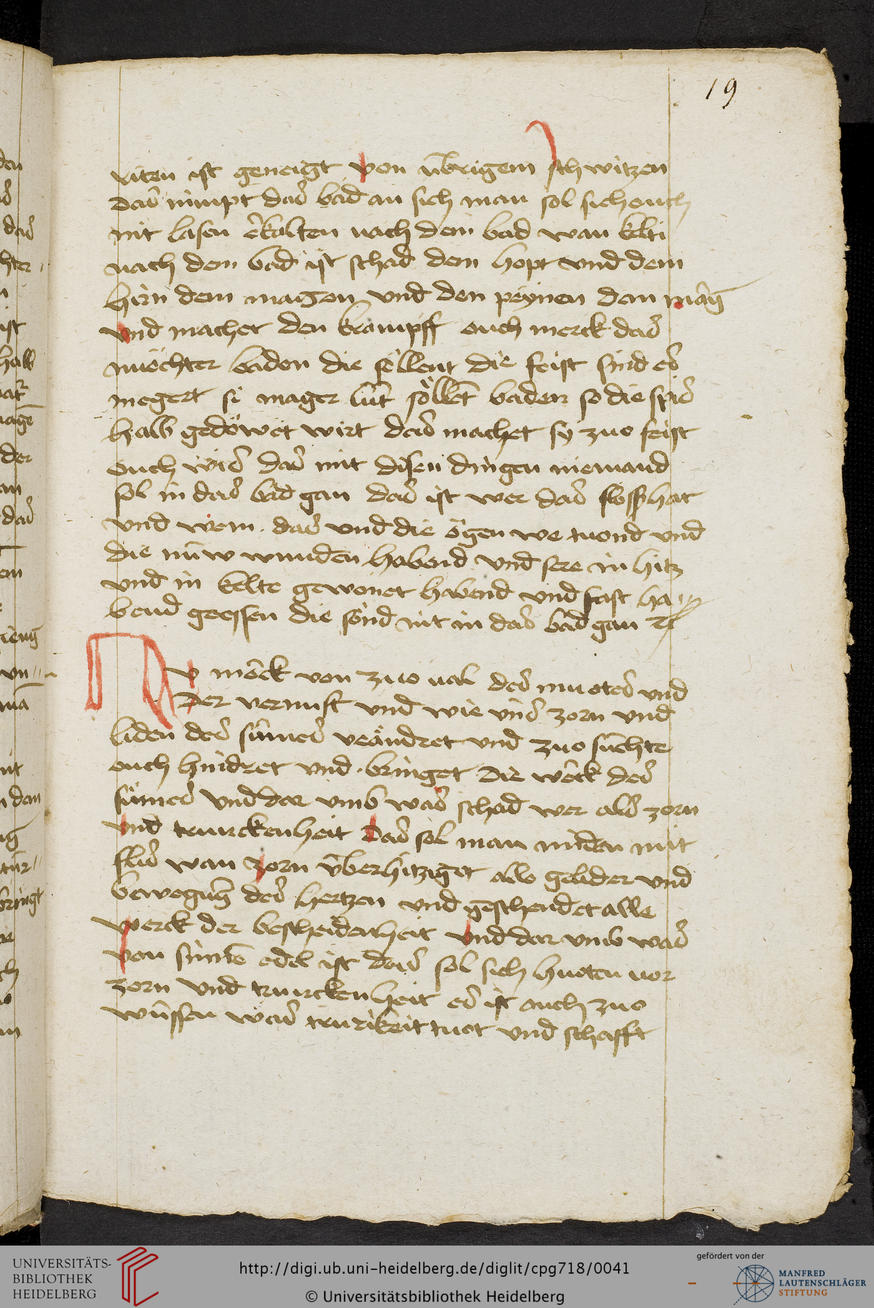 19
riten ist geneigt von úbrigem schwitzen
das nimpt das bad an sich man sol sich ouch
nit lasen erkalten nach dem bad wan kelti
nach dem bad ist schad dem hopt vnd dem
hirn dem magen vnd den peynen den mag
vnd machet den krampff ouch merck das
nuͦchter baden die soͤllent die feist sind es
megert si mager lút soͤllent baden so die spis
halb gedoͤwet wirt das machet sy zuo feist
ouch wis das mit disen dingen niemand
sol in das bad gan das ist wer das floss hat
vnd wem das vnd die oͤgen we tuond vnd
die núw wunden habend vnd sere in hitz
vnd in kelte gewonet habend vnd fast ha
bend geessen die soͤnd nit in das bad gan
Nv merck von zuo ual des muotes vnd
der vernuft vnd wie vns zorn vnd
liden des sinnes veraͤndret vnd zuo suͤchte
ouch hindret vnd bringet die werck des
sinnes vnd dar vmb was schad wer als zorn
vnd trunckenheit das sol man miden mit
flis wan zorn v́berhitziget alle gelider vnd
bewegung des hertzen vnd geschendet alle
werck der bescheidenheit vnd dar vmb was
von sinne edel ist das sol sich huoten vor
zorn vnd trunckenheit es ist ouch zuo
wússen was trurikeit tuot vnd schafft
UNIVERSITÄTS-
BIBLIOTHEK
HEIDELBERG
http://digi.ub.uni-heidelberg.de/diglit/cpg718/0041
© Universitätsbibliothek Heidelberg
gefördert von der
MANFRED
LAUTENSCHLÄGER
STIFTUNG